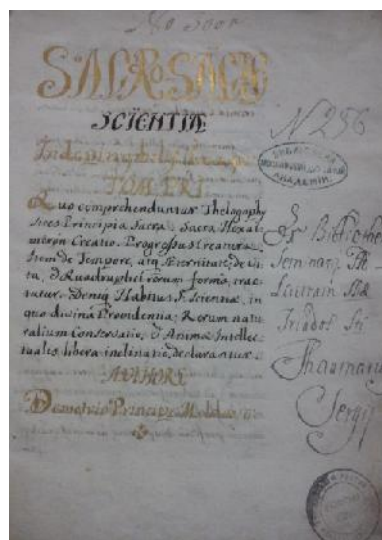 SACROSANCTÆ
SCIENTIÆ
N 256
Indepingibilis Imago
АКАДЕМІИ
TOM: PRI
Quo comprehenduntur Theologophy
sices Principia Sacra. Sacra Hexai
meron Creatio. Progressus Creaturæ.
Item de Tempore, atq Æternitate, de vi
ta, & Quadruplici rerum forma, trac
tatur. Deniq Habitus S. Scientiæ, in
quo divina Providentia; Rerum natu
ralium Conservatio, & Animæ Intellec
tualis, libera inclinatio, declarantur.
AUTHORE
Demetrio Principe Moldaviæ
Ex Bibliothe
Lavram SSæ
Triados Sti
Sergij